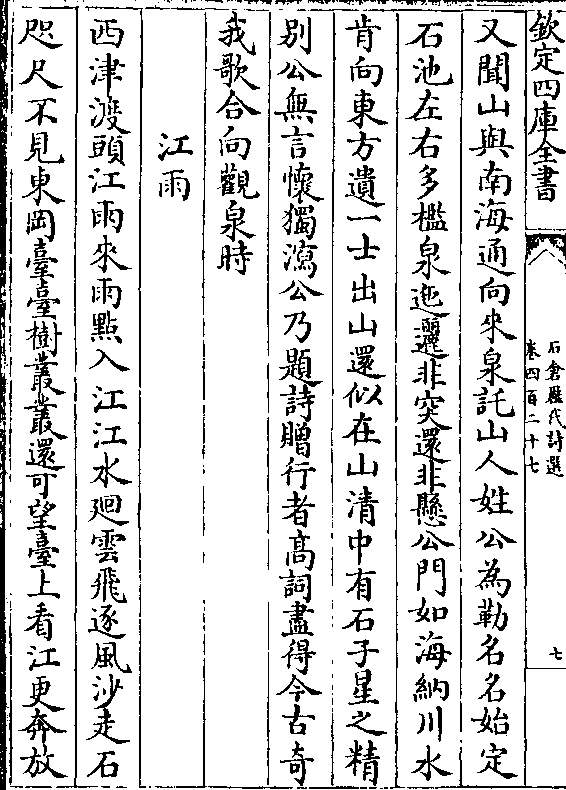 欽定四庫全書
石倉歷代詩選
卷四百二十七
七
又聞山與南海通向來泉託山人姓公為勒名名始定
石池左右多檻泉迤邐非突還非懸公門如海納川水
肯向東方遺一士出山還似在山清中有石子星之精
別公無言懷獨瀉公乃題詩贈行者高詞盡得今古奇
我歌合向觀泉時
江雨
西津渡頭江雨來雨點入江江水廻雲飛逐風沙走石
咫尺不見東岡臺臺樹叢叢還可望臺上看江更奔放